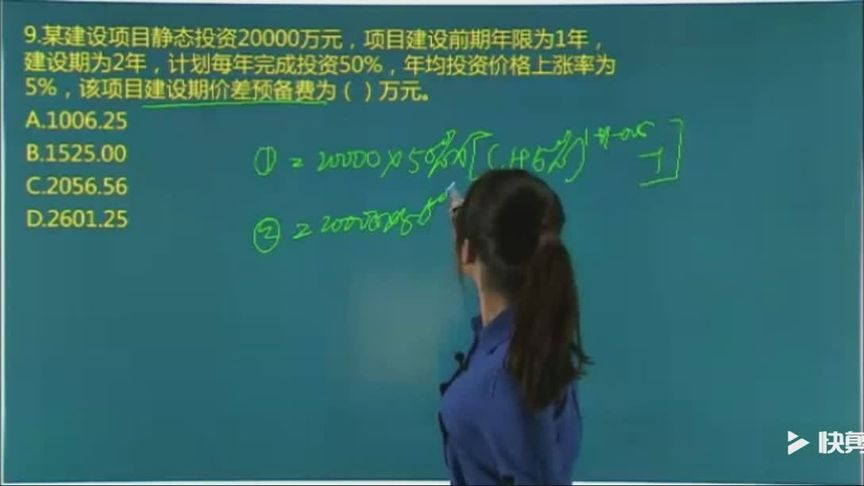 9.某建设项目静态投资20000万元，项目建设前期年限为1年，
建设期为2年，计划每年完成投资50%，年均投资价格上涨率为
5%，该项目建设期价差预备费为（ ）万元。
A.1006.25
B.1525.00
C.2056.56
D.2601.25
① = 20000×50%×[(1+5%)
-1]
② = 20000×50%
快剪